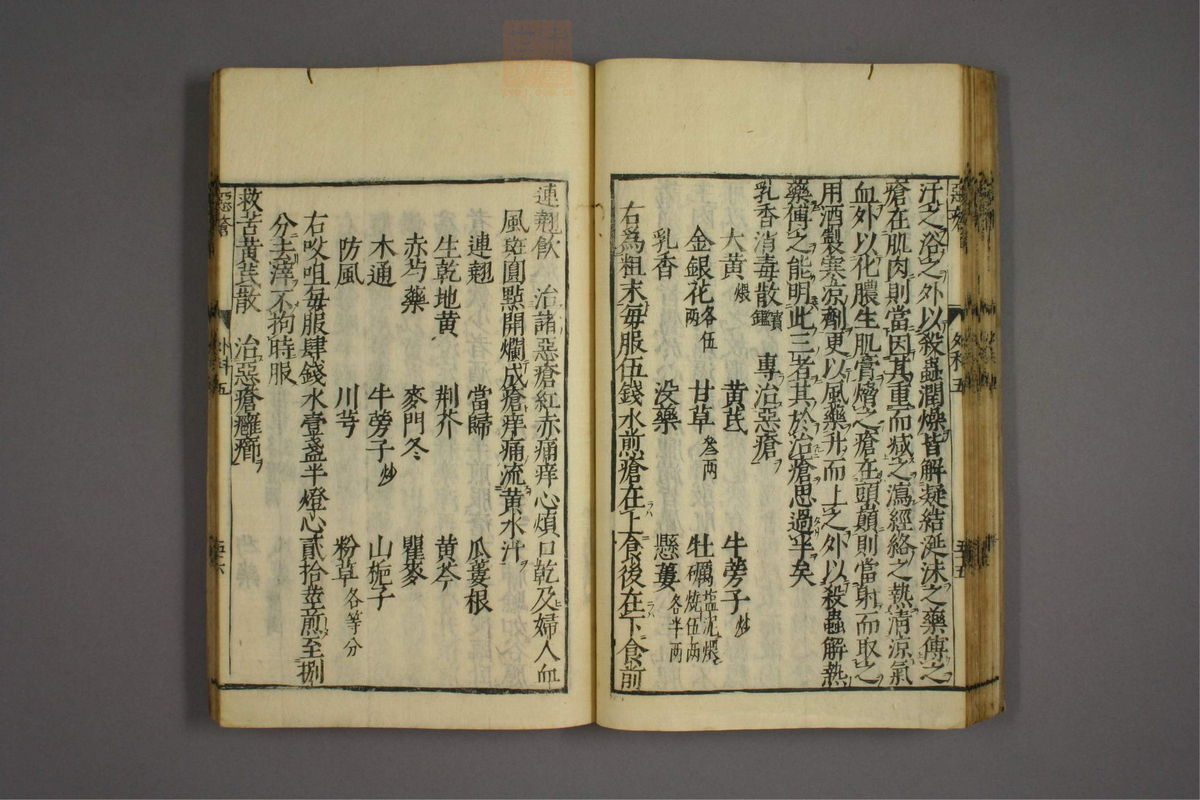 汗之浴之外以殺蟲潤燥皆解凝結涎沫之藥傅之
瘡在肌肉則當因其重而減之瀉經絡之熱清涼氣
血外以化膿生肌膏熁之瘡在頭巔則當射而取之
用酒製寒涼劑更以風藥升而上之外以殺蟲解熱
藥傅之能明此三者其於治瘡思過半矣
乳香消毒散寶鑑 專治惡瘡
大黃煨 黃芪 牛蒡子炒
金銀花各伍兩 甘草叄兩 牡礪塩泥煨燒伍兩
乳香 没藥 懸蔞各半兩
右爲粗末每服伍錢水煎瘡在上食後在下食前
連翹飲 治諸惡瘡紅赤痛痒心煩口乾及婦人血
風斑圓點開爛成瘡痒痛流黃水汁
連翹 當歸 瓜蔞根
生乾地黄 荆芥 黄芩
赤芍藥 麥門冬 瞿麥
木通 牛蒡子炒 山梔子
防風 川芎 粉草各等分
右㕮咀每服肆錢水壹盞半燈心貳拾莖煎至捌
分去滓不拘時服
救苦黄芪散 治惡瘡癰癤
惡瘡 外科五